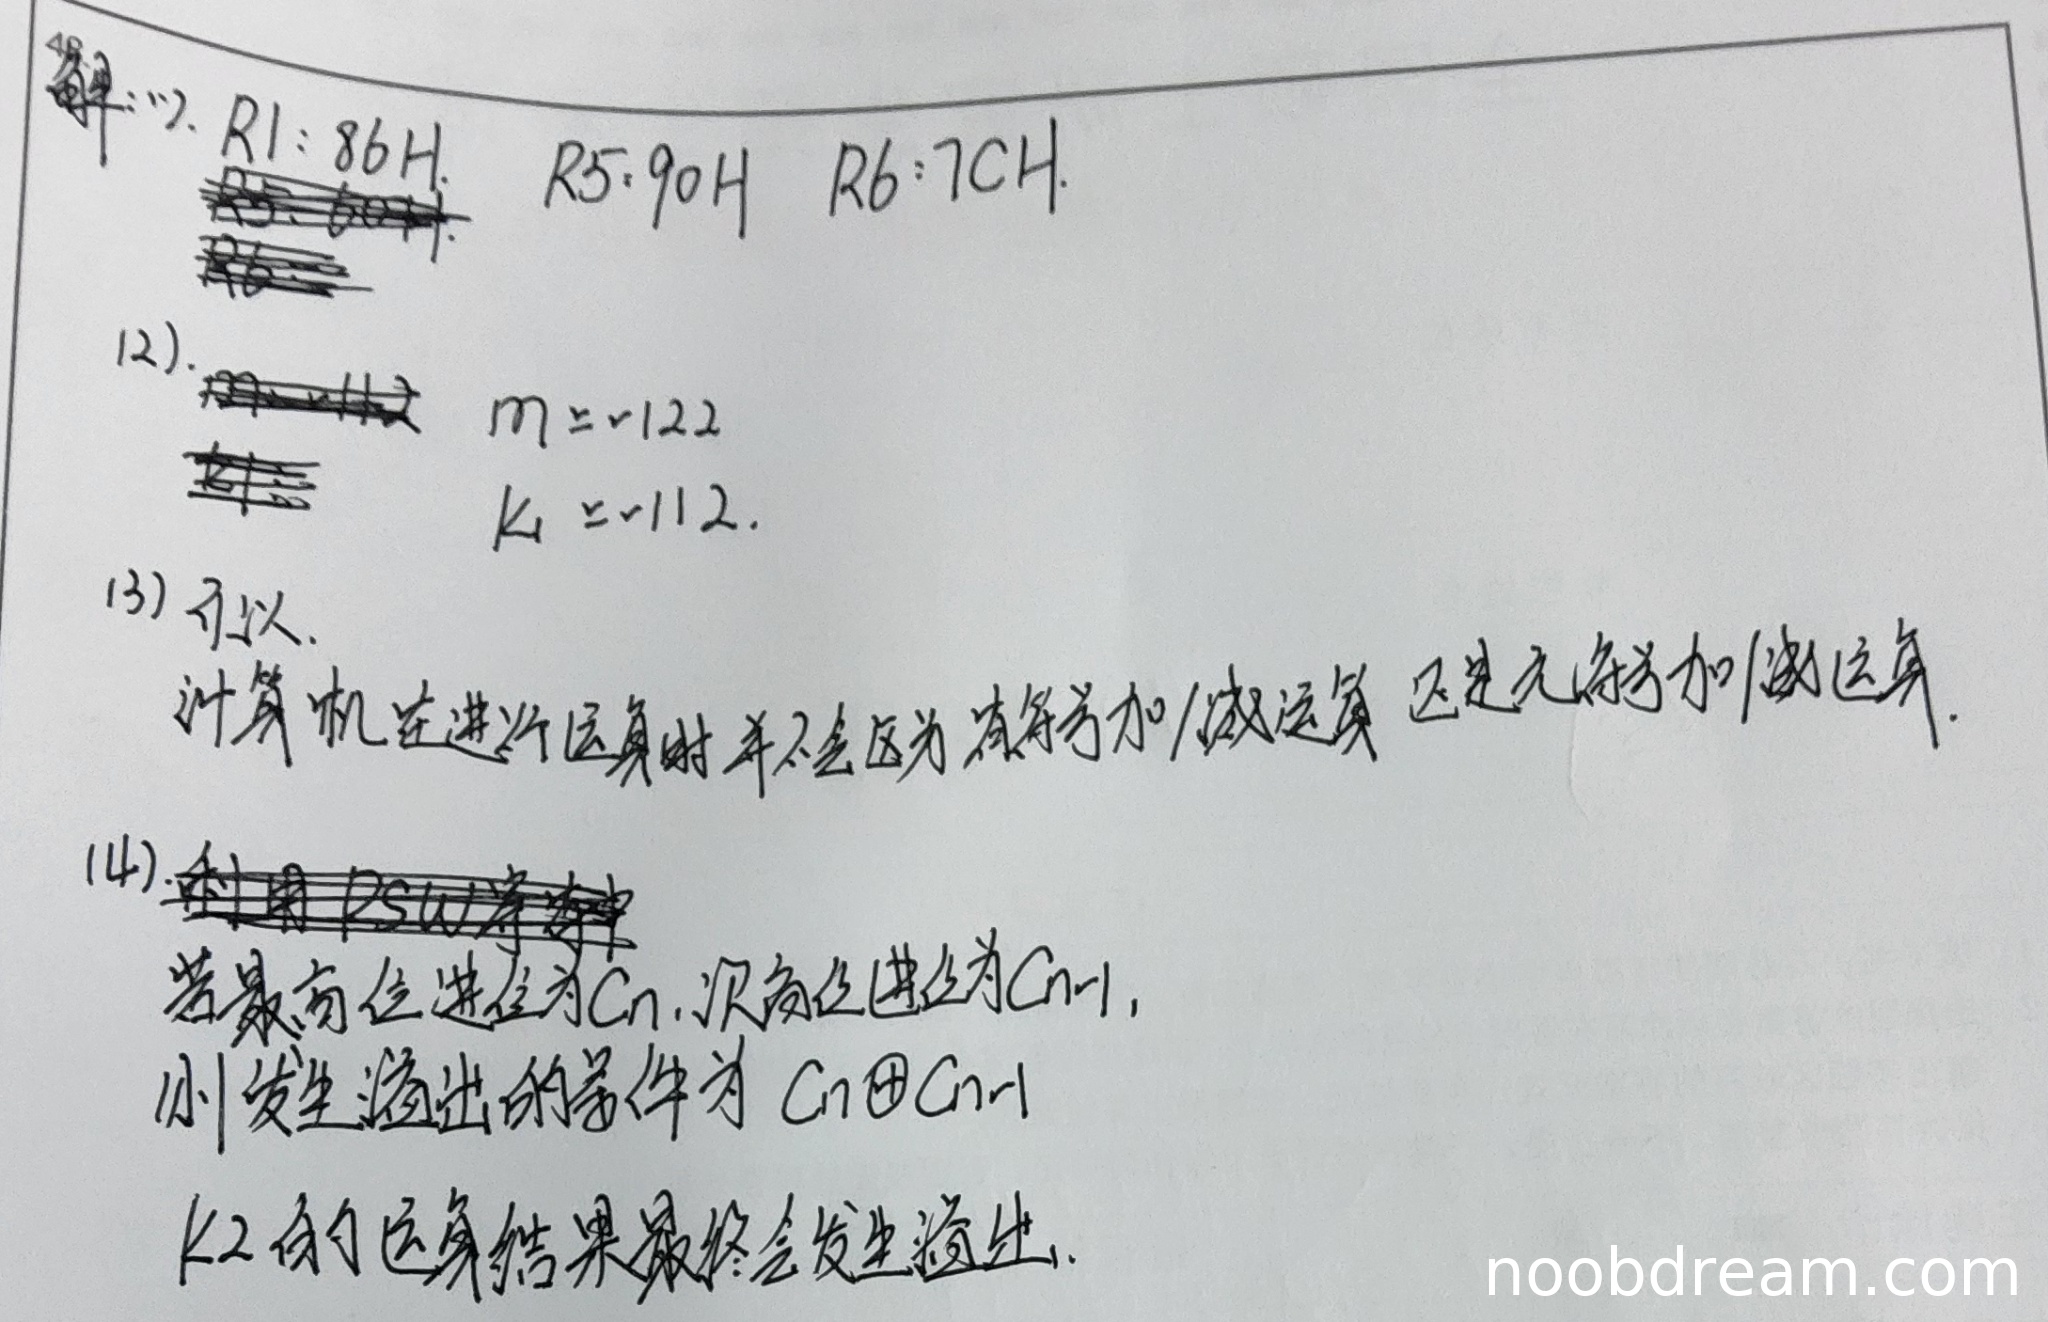 解:(1). R1:86H. R5:90H R6:7CH.
(2).
m=-122
K1=-112.
(3) 可以.
计算机在进行运算时并不会区分有符号加/减运算还是无符号加/减运算.
(4).
若最高位进位为Cn,次高位进位为Cn-1,
则发生溢出的条件为 Cn⊕Cn-1
K2的运算结果最终会发生溢出.
noobdream.com